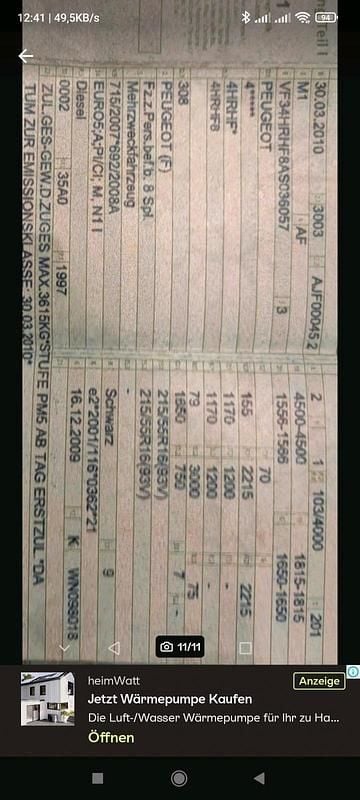 12:41 | 49,5KB/s
94
30.03.2010 3003 AJF00045 2
M1 AF
VF34HRHF8AS036057 3
PEUGEOT
4*****
4HRHF*
4HRHF8
308
PEUGEOT (F)
Fz.z.Pers.bef.b. 8 Spl.
Mehrzweckfahrzeug
715/2007*692/2008A
EURO5;A;PI/CI; M, N1 I
Diesel
0002 35A0 1997
2 1 103/4000 201
4500-4500 1815-1815
1556-1566 1650-1650
70
155 2215 2215
1170 1200 -
1170 1200 -
79 3000 75
1650 750 7 -
215/55R16(93V)
215/55R16(93V)
-
Schwarz 9
e2*2001/116*0362*21
16.12.2009 K WN099018
ZUL.GES-GEW.D.ZUGES MAX.3615KG*STUFE PM5 AB TAG ERSTZUL *DA
TUM ZUR EMISSIONSKLASSE: 30.03.2010*
11/11
heimWatt
Anzeige
Jetzt Wärmepumpe Kaufen
Die Luft-/Wasser Wärmepumpe für Ihr zu Ha...
Öffnen